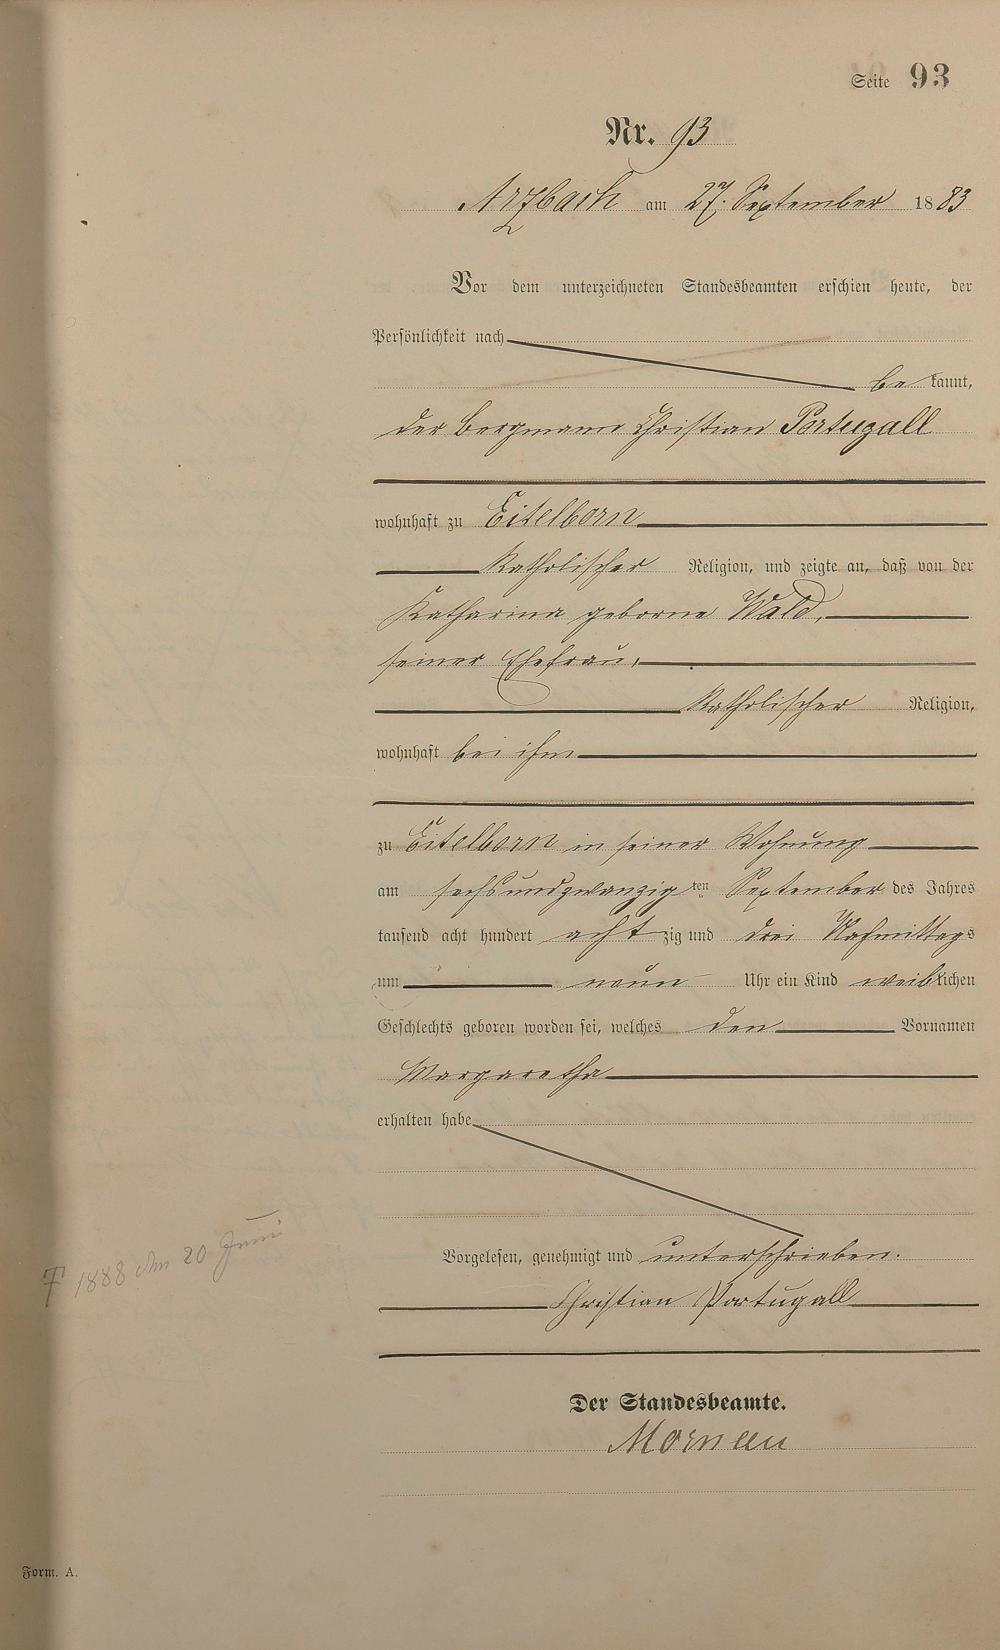 Seite 93
Nr. 93
Arzbach am 27. September 1883
Vor dem unterzeichneten Standesbeamten erschien heute, der
Persönlichkeit nach
bekannt,
der Bergmann Christian Portugall
wohnhaft zu Eitelborn
katholischer Religion, und zeigte an, daß von der
Katharina geborne Wald,
seiner Ehefrau,
katholischer Religion,
wohnhaft bei ihm
zu Eitelborn in seiner Wohnung
am sechsundzwanzig ten September des Jahres
tausend acht hundert achtzig und drei Nachmittags
um neun Uhr ein Kind weiblichen
Geschlechts geboren worden sei, welches den Vornamen
Margaretha
erhalten habe
Vorgelesen, genehmigt und unterschrieben.
Christian Portugall
† 1888 den 20 Juni
Der Standesbeamte.
Form. A.